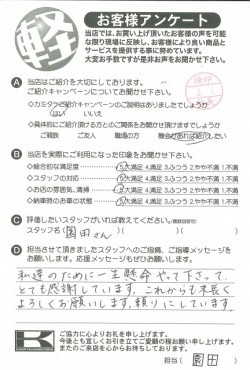 軽
お客様アンケート
当店では、お買い上げ頂いたお客様の声を可能
な限り現場に反映し、お客様により良い商品と
サービスを提供する事に努めています。
大変お手数ですが是非お声をお聞かせ下さい。
A 当店はご紹介を大切にしております。
ご紹介キャンペーンについてお聞かせ下さい。
・カミタウンご紹介キャンペーンのご説明はありましたでしょうか
はい いいえ
・具体的にご紹介頂ける方とのご関係をお聞かせ頂けますでしょうか
ご親族 ご友人 職場の方 機会があれば紹介したい
B 当店を実際にご利用になった印象をお聞かせ下さい。
・総合的な満足度 5.大満足 4.満足 3.ふつう 2.やや不満 1.不満
・スタッフの対応 5.大満足 4.満足 3.ふつう 2.やや不満 1.不満
・お店の雰囲気、清掃 5.大満足 4.満足 3.ふつう 2.やや不満 1.不満
・納車時のお車の状態 5.大満足 4.満足 3.ふつう 2.やや不満 1.不満
C 評価したいスタッフがいれば教えてください。
スタッフ名( 園田さん )
D 担当させて頂きましたスタッフへのご指摘、ご指導メッセージを
お願いします。応援メッセージもぜひお願いします。
私達のために一生懸命やって下さって、
とても感謝しています。これからも末長く
よろしくお願いします。頼りにしています。
K
ご協力に心よりお礼を申し上げます。
今後とも宜しくお引き立てご愛顧の程お願い申し上げます。
またのご来店を心からお待ちしております。
担当( 園田 )